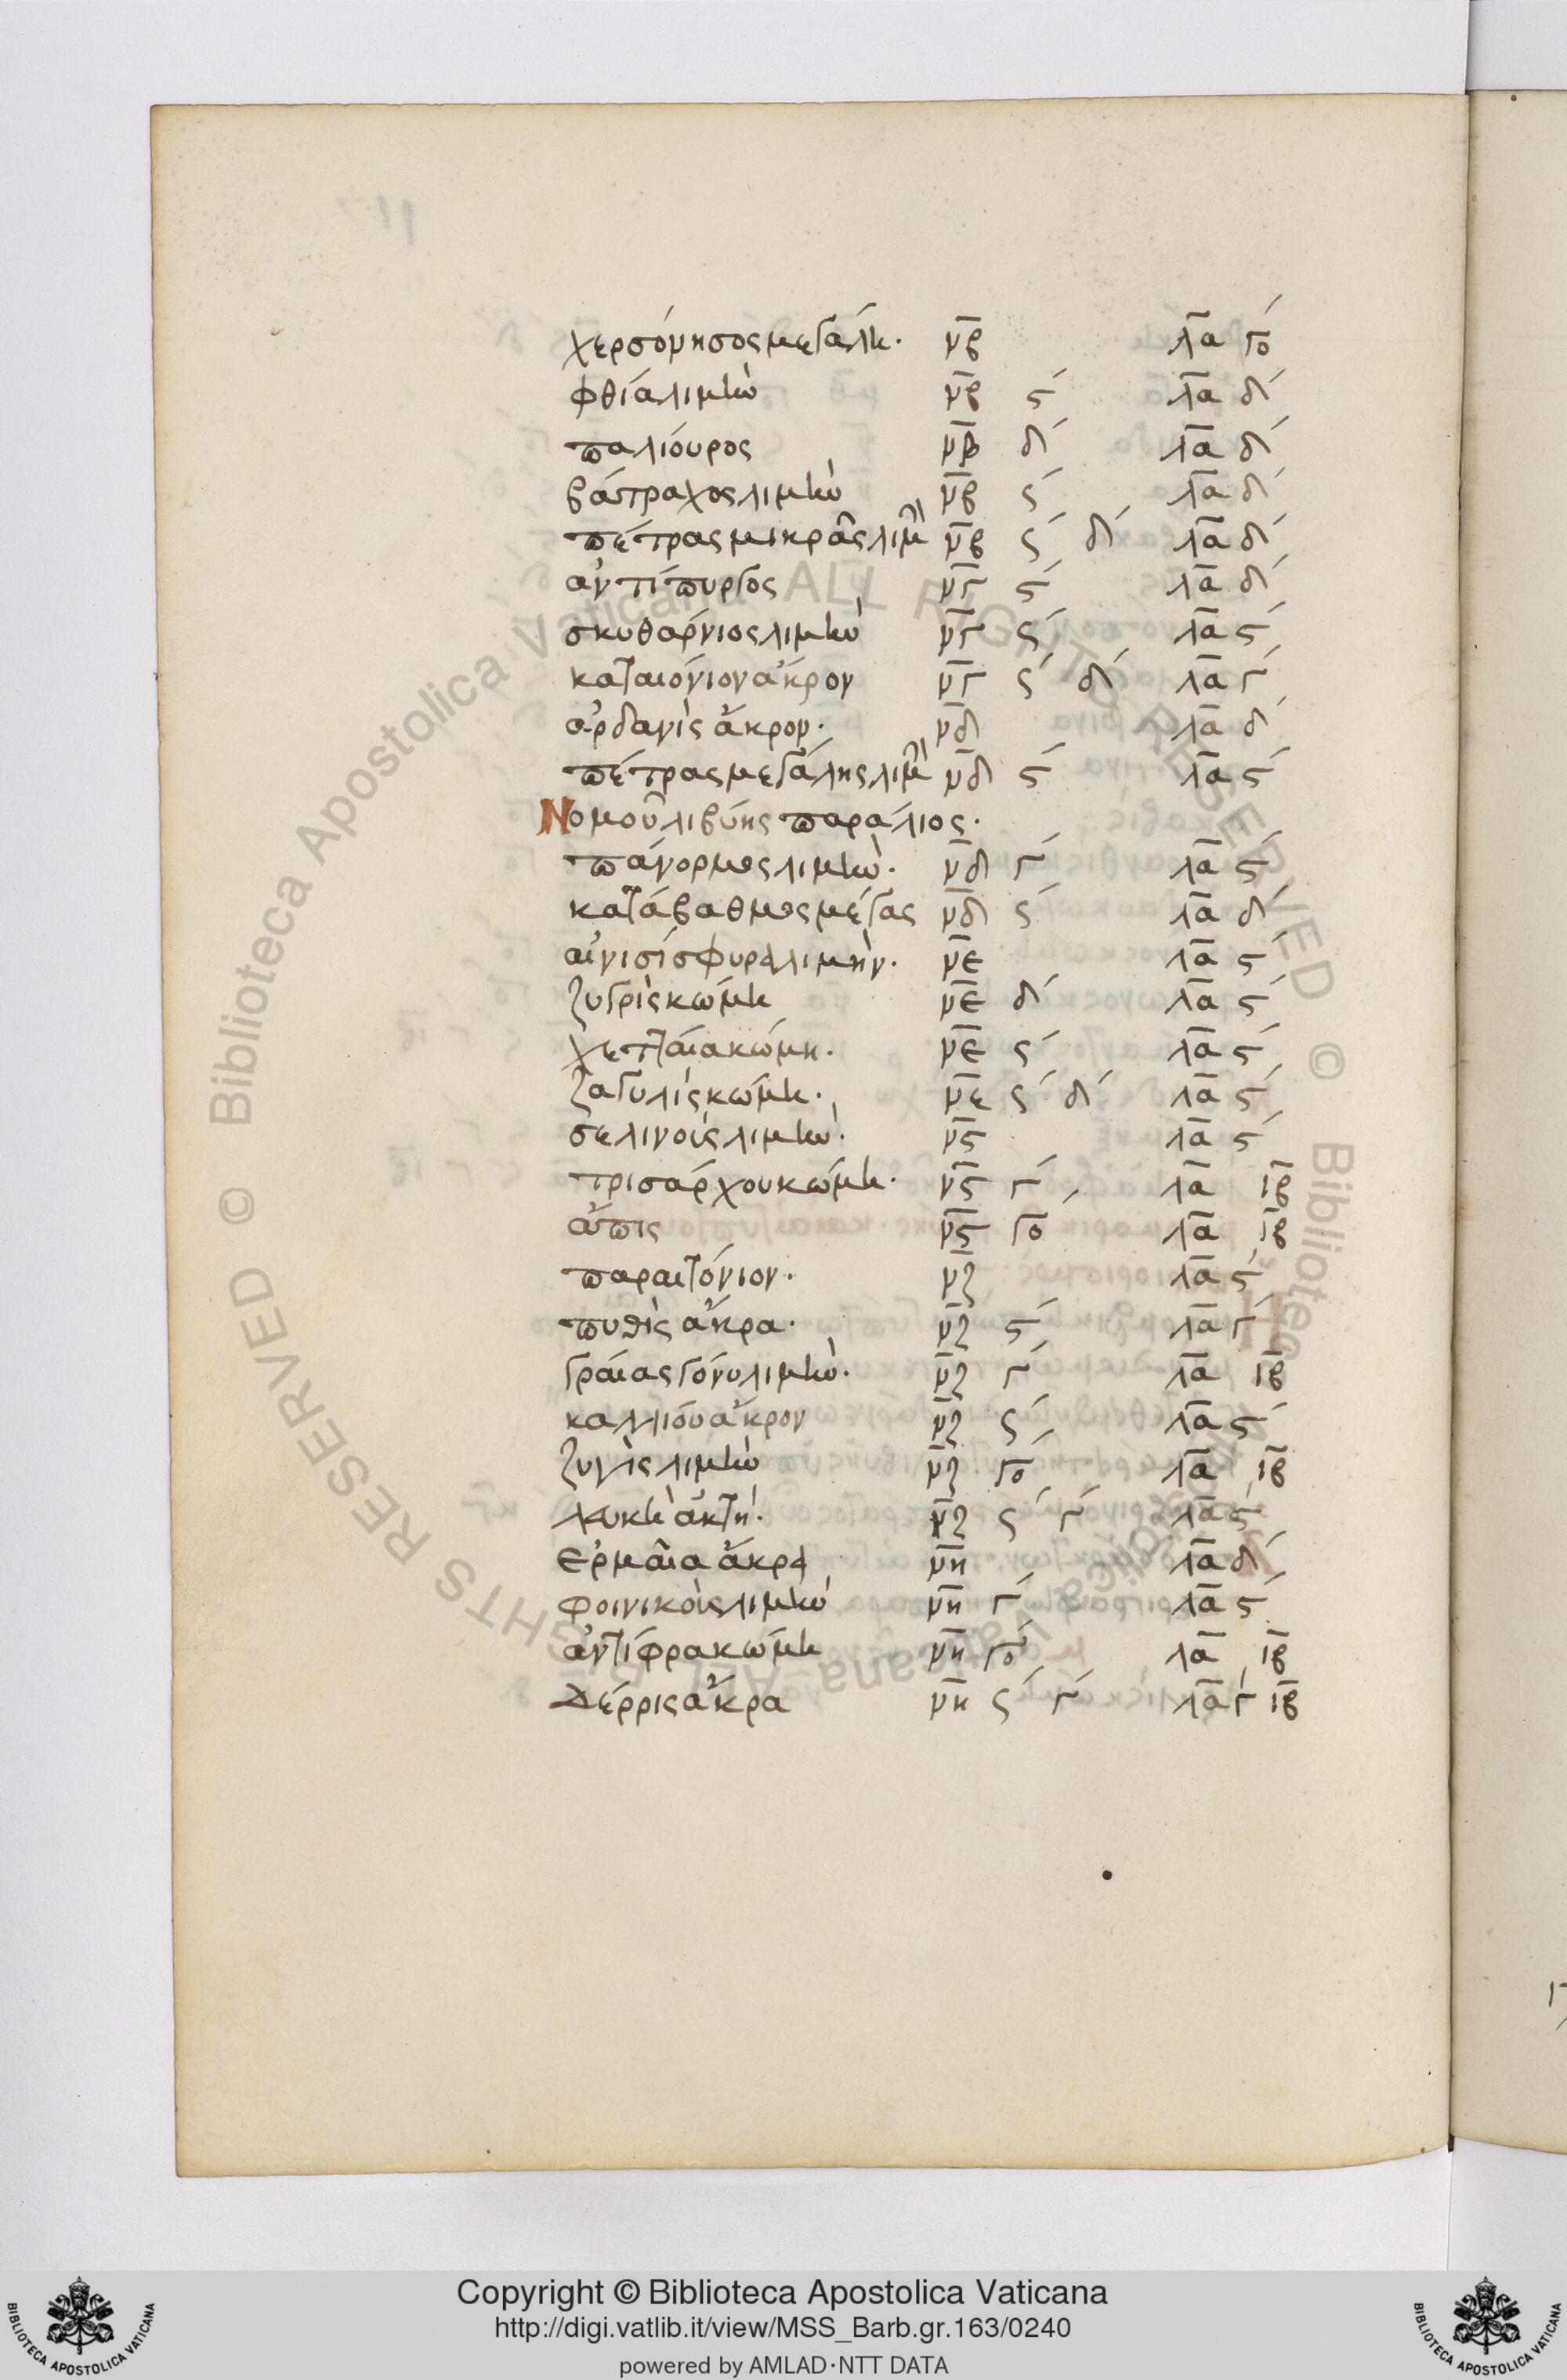 χερσόνησος μεγάλη. νβ λα γο
φθία λιμὴν νβ ϛ λα δ
παλίουρος νβ δ λα δ
βάτραχος λιμὴν νβ ς λα δ
πέτρας μικρᾶς λιμ νβ ς δ λα δ
ἀντίπυργος νγ ϛ λα δ
σκυθάρνιος λιμὴν νγ ς λα ϛ
καταιόνιον ἄκρον νγ ς δ λα γ
ἀρδανὶς ἄκρον. νδ λα δ
πέτρας μεγάλης λιμ νδ ϛ λα ϛ
Νομοῦ λιβύης παράλιος.
πάνορμος λιμὴν. νδ γ λα ϛ
κατάβαθμος μέγας νδ ς λα δ
αἰνισίσφυρα λιμὴν. νε λα ϛ
ζυγρὶς κώμη νε δ λα ϛ
χετταία κώμη. νε ς λα ϛ
ζαγυλὶς κώμη. νε ς δ λα ϛ
σελινοὺς λιμὴν. νϛ λα ϛ
τρισάρχου κώμη. νϛ γ λα ιβ
ἄπις νϛ γο λα ιβ
παραιτόνιον. νζ λα ϛ
πυθὶς ἄκρα. νζ ϛ λα γ
γραίας γόνυ λιμὴν. νζ γ λα ιβ
καλλίου ἄκρον νζ ς λα ϛ
ζυγὶς λιμὴν νζ γο λα ιβ
λευκὴ ἀκτὴ. νζ ς γ λα ς
ἑρμαῖα ἄκρα νη λα δ
φοινικοὺς λιμὴν νη γ λα ϛ
ἀντίφρα κώμη νη γο λα ιβ
Δέρρις ἄκρα νη ς γ λα γ ιβ
Copyright © Biblioteca Apostolica Vaticana
http://digi.vatlib.it/view/MSS_Barb.gr.163/0240
powered by AMLAD·NTT DATA
BIBLIOTECA APOSTOLICA VATICANA
BIBLIOTECA APOSTOLICA VATICANA